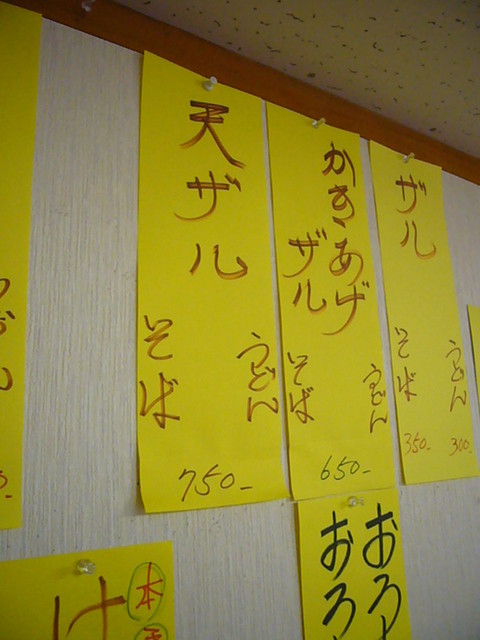 ザル
うどん
そば
300-
350-
かきあげ
ザル
うどん
そば
650-
天ザル
うどん
そば
750-
おろ
おろ
け
本